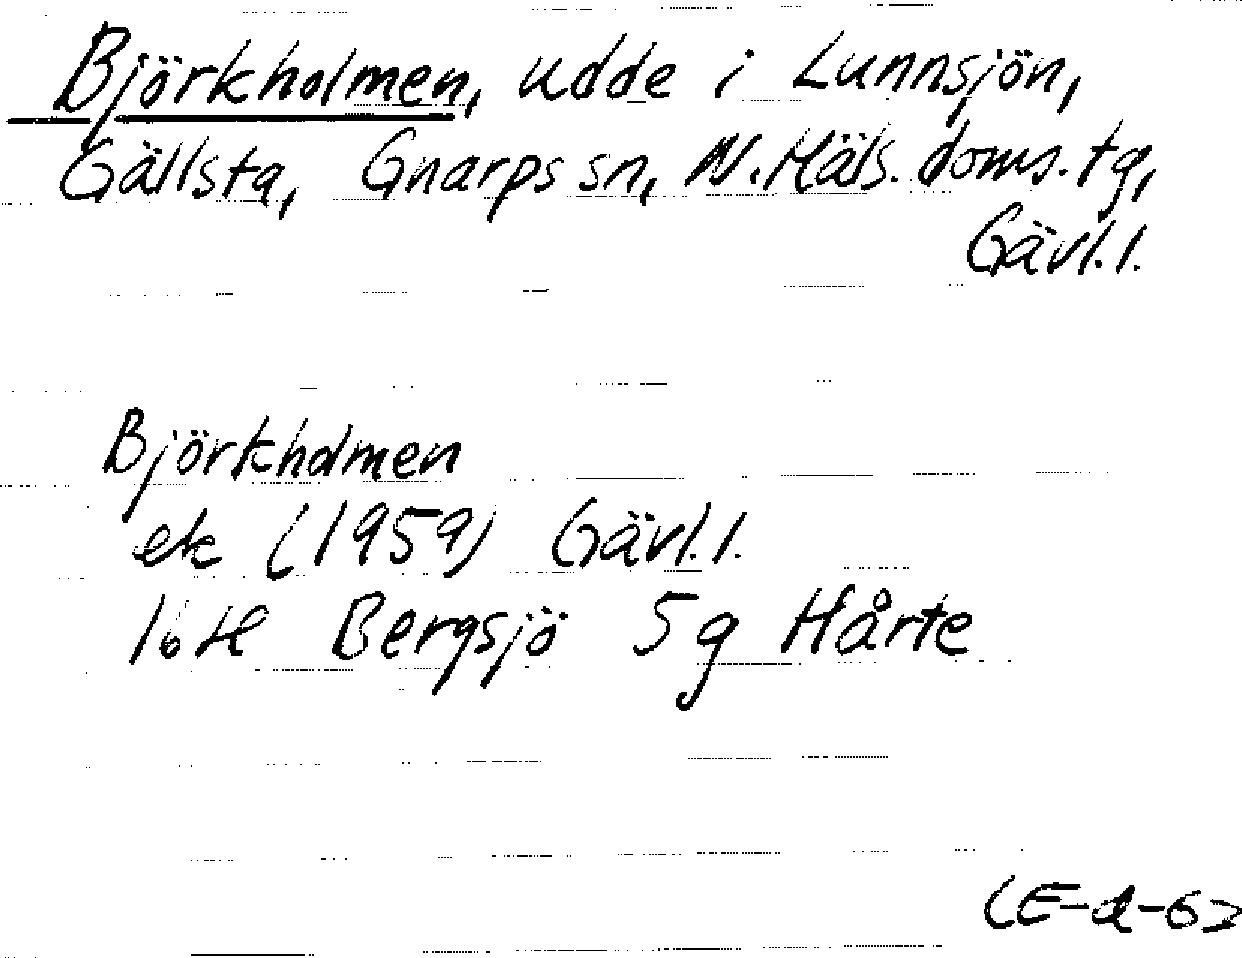 Björkholmen, udde i Lunnsjön,
Gällsta, Gnarps sn, N. Häls. doms. tg,
Gävl. l.
Björkholmen
ek (1959) Gävl. l.
16H Bergsjö 5g Hårte